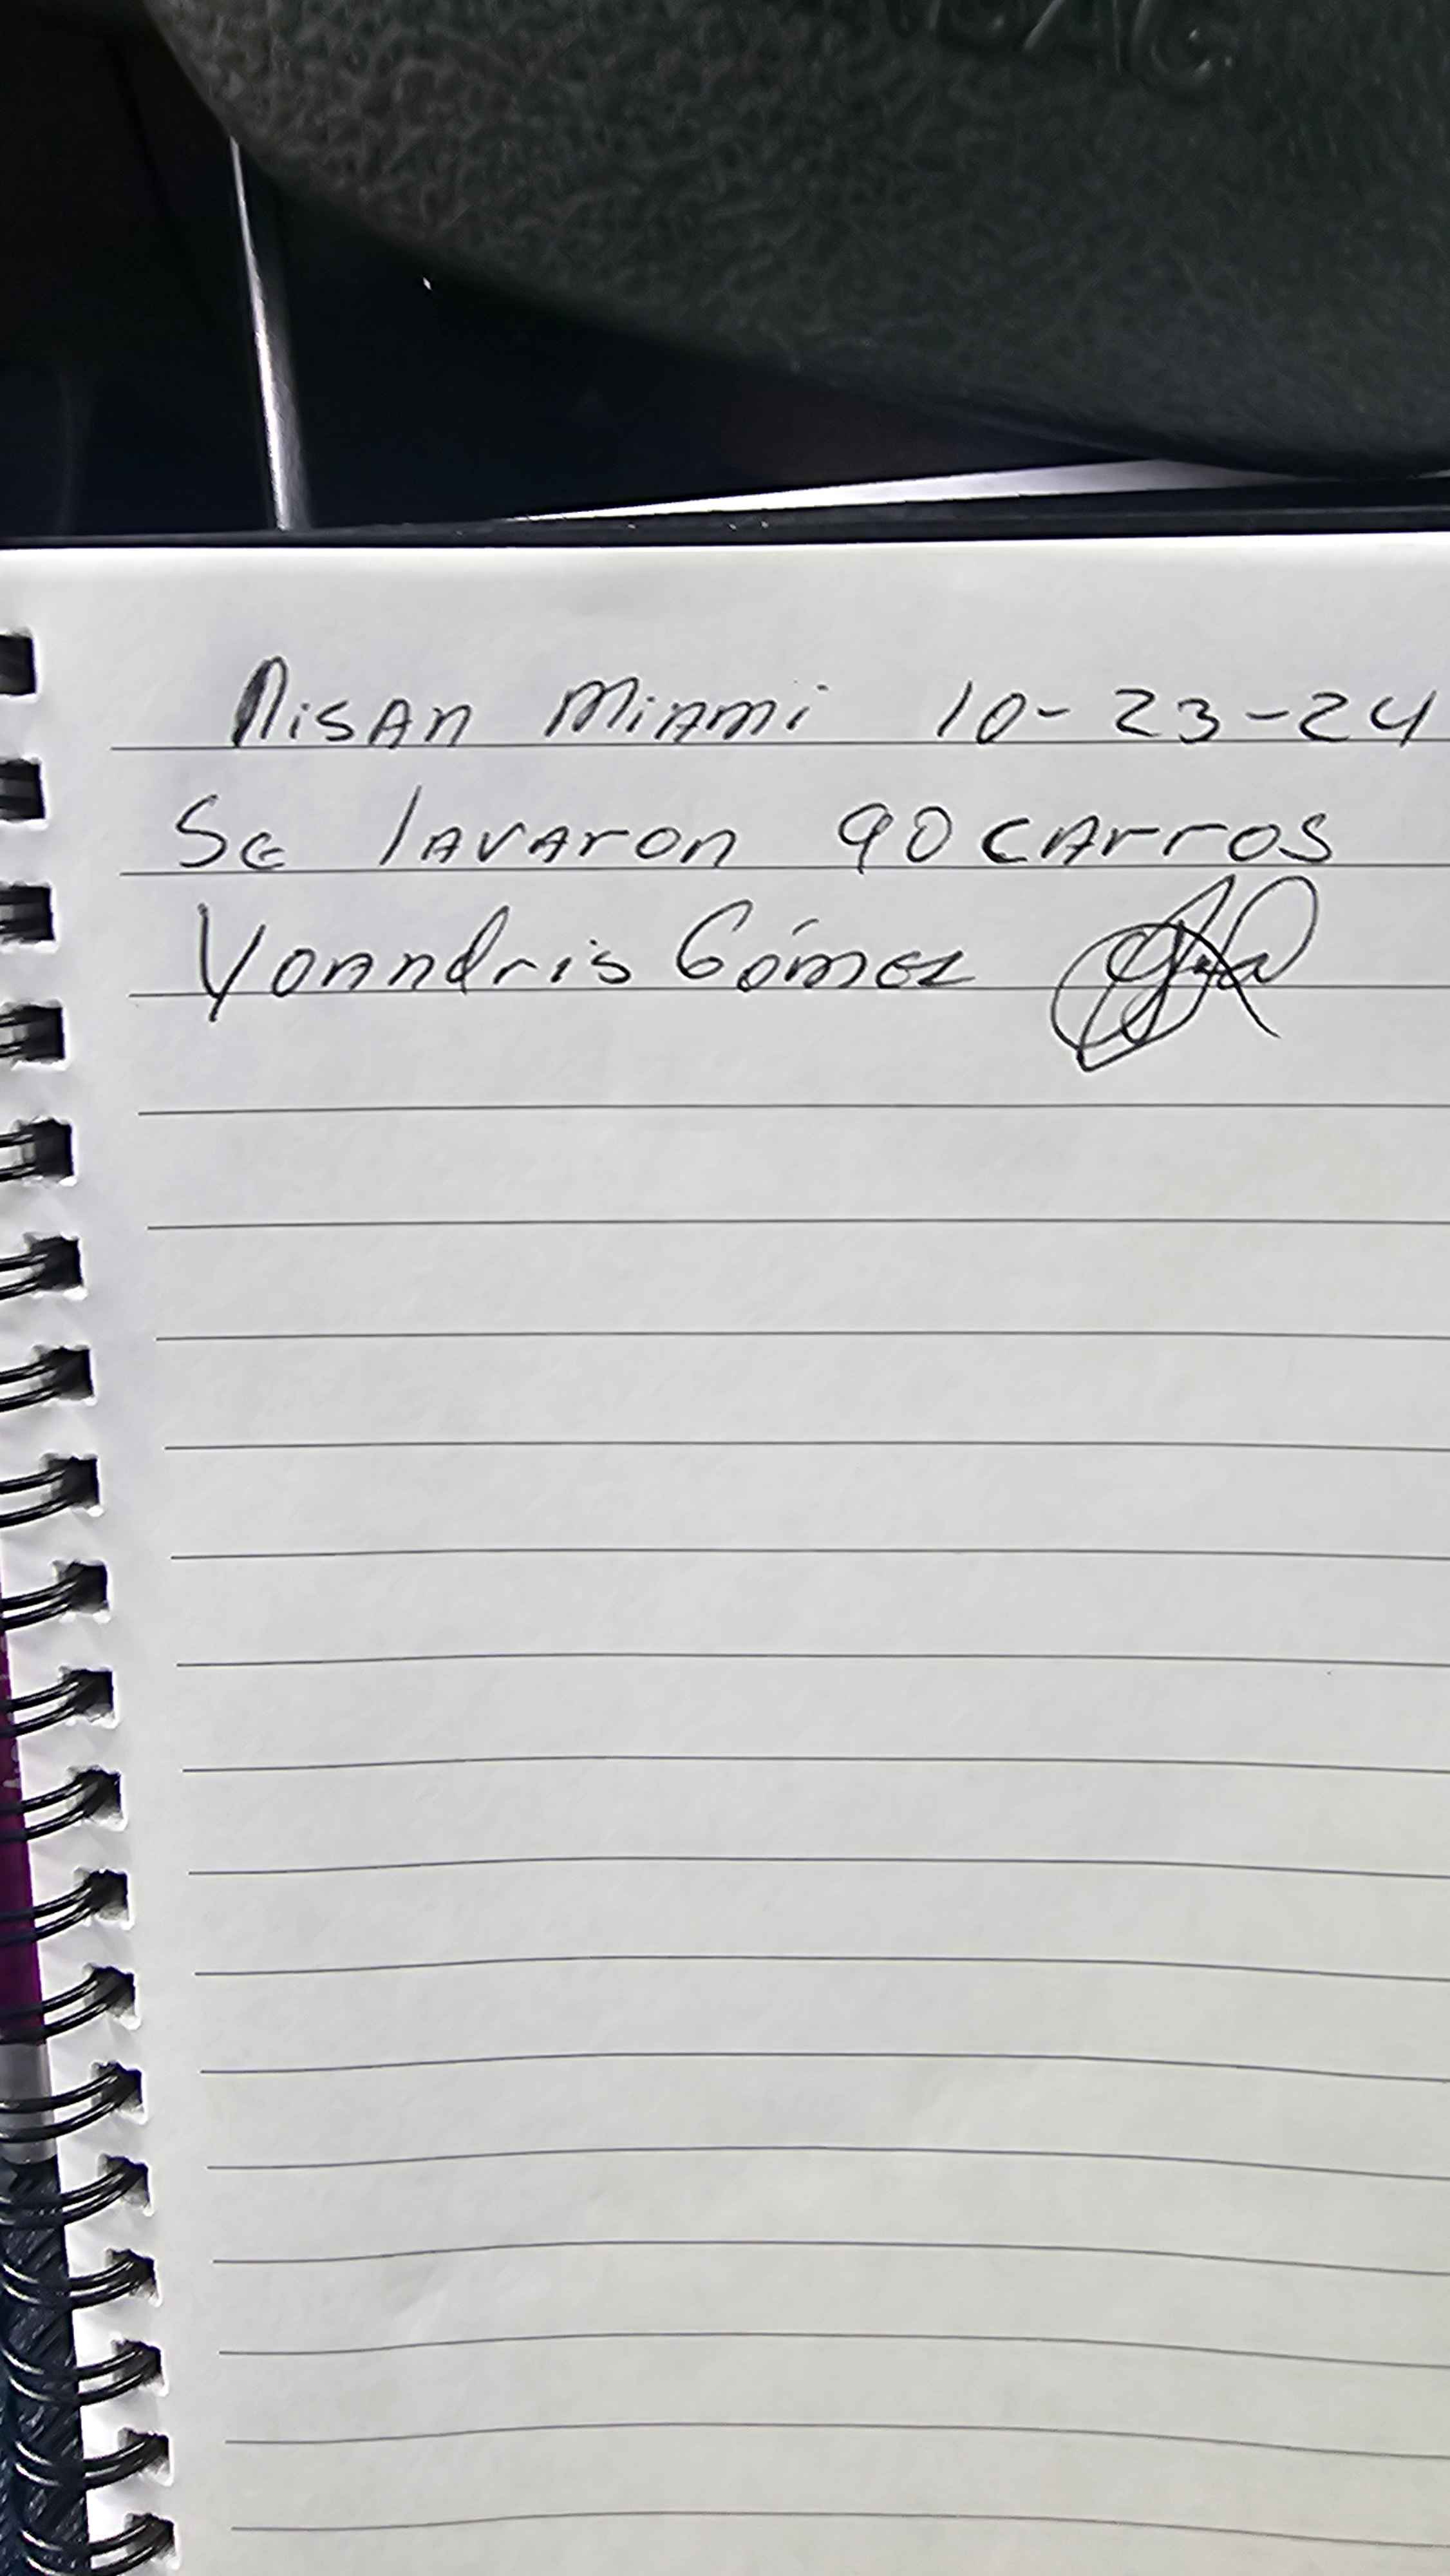 NisAn Miami 10-23-24
Se lavaron 90 carros
Yoandris Gómez